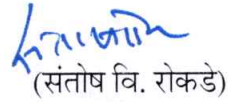 (संतोष वि. रोकडे)